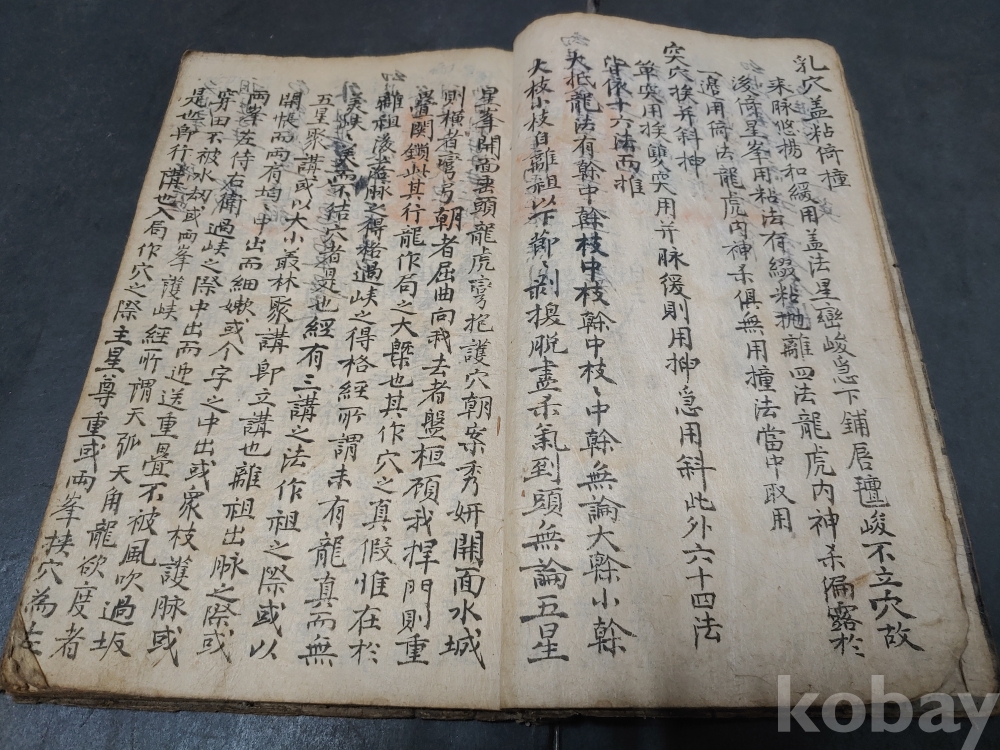 乳穴盖粘倚撞
來脉悠揚和緩用盖法星巒峻急下鋪唇氊峻不立穴故
後倚星峯用粘法有綴粘抛離四法龍虎內神杀漏露於
邊用倚法龍虎內神杀俱無用撞法當中取用
突穴挨并斜揷
單突用挨雙突用并脉緩則用揷急用斜此外六十四法
皆依十六法而推
大抵龍法有幹中幹枝中枝幹中枝枝中幹無論大幹小幹
大枝小枝自離祖以下節〻剝換脫盡杀氣到頭無論五星
星峯開面出頭龍虎彎抱護穴朝案秀妍開面水城
則橫者彎弓朝者屈曲向我去者盤桓顧我捍門則重
疊関鎖此其行龍作局之大槩也其作穴之真假惟在於
離祖後落脉之得格過峽之得格經所謂未有龍真而無
美峽美而不結穴者是也經有三講之法作祖之際或以
五星聚講或以大小叢林聚講即立講也離祖出脉之際或
開帳而兩有均中出而細嫰或个字之中出或衆枝護脉或
兩峯左侍右衛過峽之際中出而迎送重疊不被風吹過坂
穿田不被水刼或兩峯護峽經所謂天弧天角龍欲度者
是也即行講也入局作穴之際主星尊重或兩峯挾穴為左
kobay